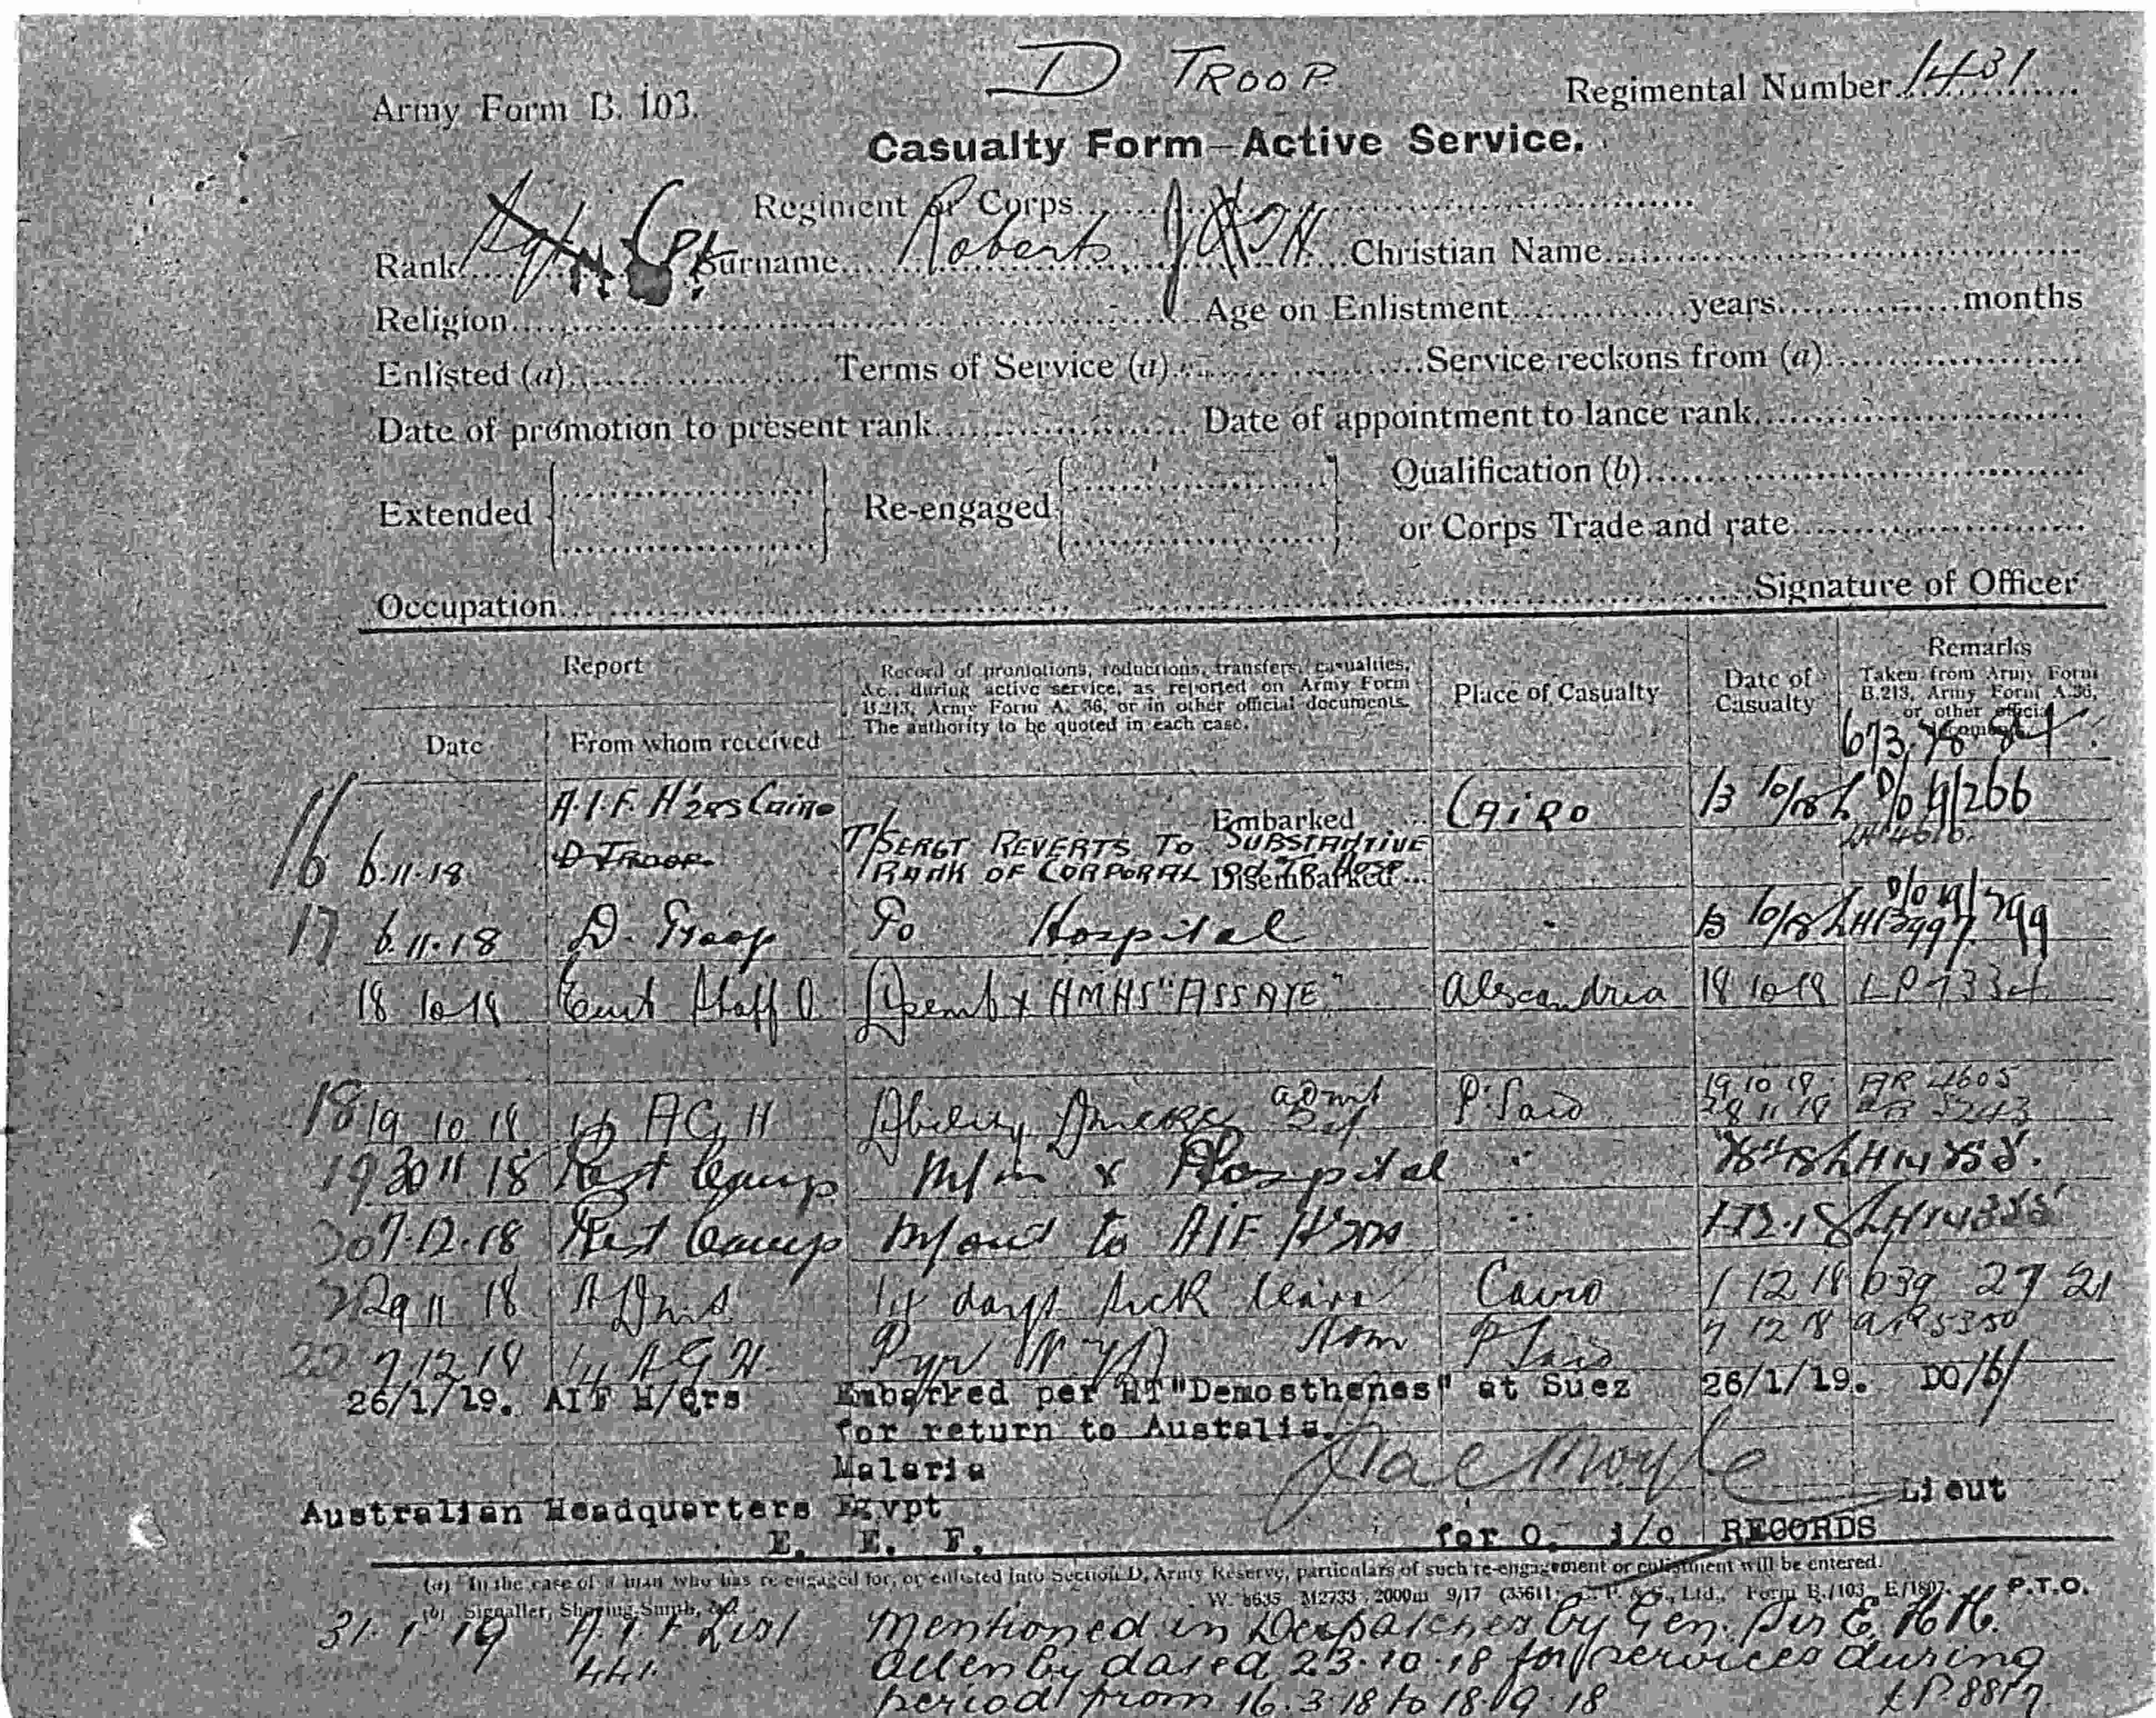 D TROOP
Army Form B. 103.
Regimental Number 1431
Casualty Form—Active Service.
Regiment or Corps
Rank Cpl Surname Roberts J Christian Name
Religion Age on Enlistment years months
Enlisted (a) Terms of Service (a) Service reckons from (a)
Date of promotion to present rank Date of appointment to lance rank
Extended Re-engaged Qualification (b)
or Corps Trade and rate
Occupation Signature of Officer
Report
Date From whom received
Record of promotions, reductions, transfers, casualties, &c., during active service, as reported on Army Form B.213, Army Form A. 36, or in other official documents. The authority to be quoted in each case.
Place of Casualty
Date of Casualty
Remarks
Taken from Army Form B.213, Army Form A.36, or other official documents
673
A.I.F. H'qrs Cairo Embarked CAIRO
16 6.11.18 D TROOP T/SERGT REVERTS TO SUBSTANTIVE
RANK OF CORPORAL Disembarked
17 6.11.18 D. Troop To Hospital
18 10 18 Staff O HMHS "ASSAYE" Alexandria 18 10 18
18 19 10 18 14 AGH admt P. Said 19 10 18 AR 4605
28 11 18 5243
19 30 11 18 Rest Camp M/in x Hospital
20 7.12.18 Rest Camp M/out to AIF H'qrs
29 11 18 14 days sick leave Cairo 1 12 18 639 27 21
22 7.12.18 14 AGH P Said 7 12 18 AR 5350
26/1/19. AIF H/Qrs Embarked per HT "Demosthenes" at Suez 26/1/19. DO/6/
for return to Australia.
Malaria
Lieut
Australian Headquarters Egypt
E. E. F. for O. i/c RECORDS
(a) In the case of a man who has re-engaged for, or enlisted into Section D, Army Reserve, particulars of such re-engagement or enlistment will be entered.
(b) Signaller, Shoeing Smith, &c. W. 8635 M2733 2000m 9/17 Ltd., Form B./103 P.T.O.
31. 1. 19 A.I.F. List Mentioned in Despatches by Gen. Sir E. H. H.
441. Allenby dated 23.10.18 for services during
period from 16.3.18 to 18.9.18